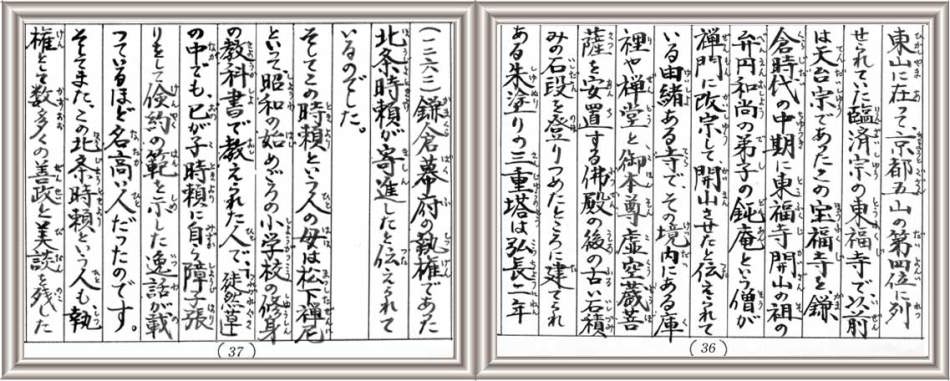 東山に在って京都五山の第四位に列
せられていた臨済宗の東福寺で以前
は天台宗であったこの宝福寺を、鎌
倉時代の中期に東福寺開山の祖の
弁円和尚の弟子の鈍庵という僧が
禅門に改宗して開山させたと伝えられて
いる由緒ある寺で、その境内にある庫
裡や禅堂と御本尊虚空蔵菩
薩を安置する佛殿の後の古い石積
みの石段を登りつめたところに建てられ
ある朱塗りの三重塔は弘長二年
(36)
(一二六二)鎌倉幕府の執権であった
北条時頼が寄進したと伝えられて
いるのでした。
そしてこの時頼という人の母は松下禅尼
といって昭和の始めごろの小学校の修身
の教科書で教えられた人で、徒然草
の中でも、己が子時頼に自ら障子張
りをして倹約の範を示した逸話が載
っているほど名高い人だったのです。
そしてまた、この北条時頼という人も、執
権として数多くの善政と美談を残した
(37)